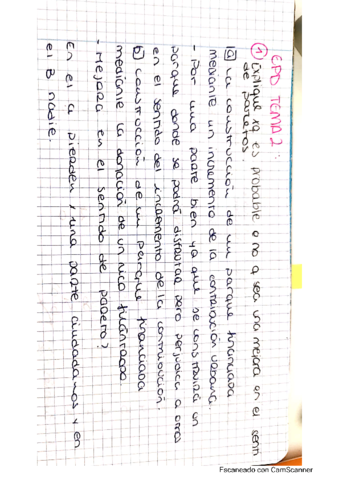 EPD TEMA 2:
① Explique xq es probable o no q sea una mejora en el senti
do de pareto.
a) La construcción de un parque financiada
mediante un incremento de la contribución urbana.
- Por una parte bien ya que se construirá un
parque donde se podrá disfrutar pero perjudica a otros
en el sentido del incremento de la contribución.
b) construcción de un parque financiada
mediante la donación de un rico filántropo
- Mejora en el sentido de pareto?
En el a pierden, una parte ciudadanos y en
el B nadie.
Escaneado con CamScanner